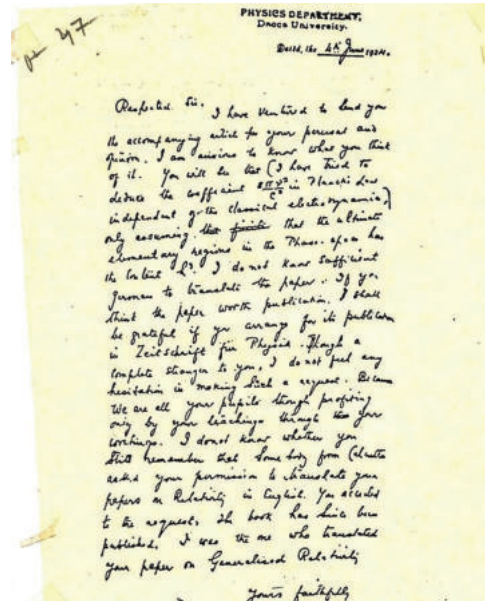 PHYSICS DEPARTMENT,
Dacca University.
Dated, the 4th June 1924.
47
Respected Sir,
I have ventured to send you
the accompanying article for your perusal and
opinion. I am anxious to know what you think
of it. You will see that I have tried to
deduce the coefficient 8πν²/c³ in Planck's Law
independent of the classical electrodynamics,
only assuming that the ultimate
elementary regions in the Phase-space has
the content h³. I do not know sufficient
German to translate the paper. If you
think the paper worth publication, I shall
be grateful if you arrange for its publication
in Zeitschrift für Physik. Though a
complete stranger to you, I do not feel any
hesitation in making such a request. Because
We are all your pupils though profiting
only by your teachings through your
writings. I do not know whether you
still remember that Somebody from Calcutta
asked your permission to translate your
papers on Relativity in English. You acceded
to the request. The book has since been
published. I was the one who translated
your paper on Generalised Relativity
Yours faithfully